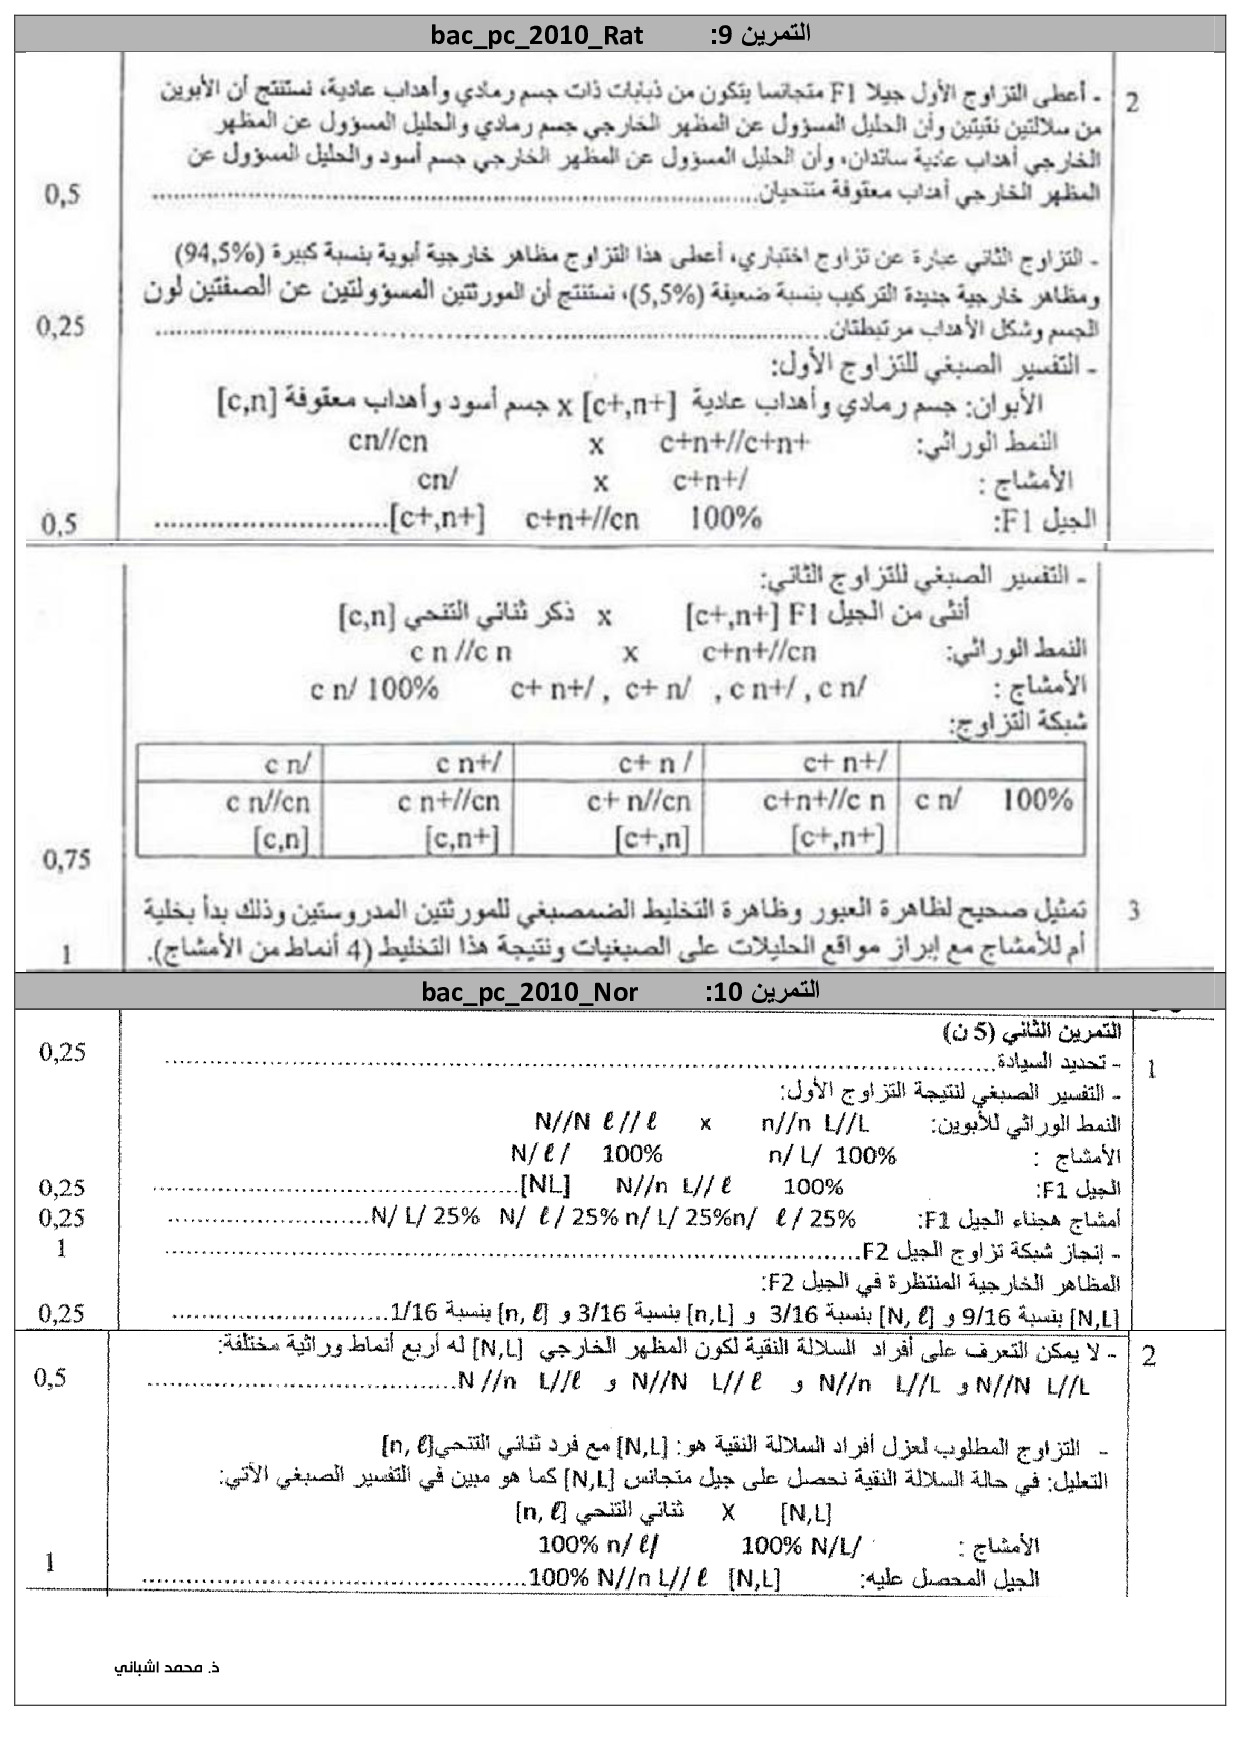 التمرين 9: bac_pc_2010_Rat
2
- أعطى التزاوج الأول جيلا F1 متجانسا يتكون من ذبابات ذات جسم رمادي وأهداب عادية، نستنتج أن الأبوين
من سلالتين نقيتين وأن الحليل المسؤول عن المظهر الخارجي جسم رمادي والحليل المسؤول عن المظهر
الخارجي أهداب عادية سائدان، وأن الحليل المسؤول عن المظهر الخارجي جسم أسود والحليل المسؤول عن
المظهر الخارجي أهداب معقوفة متنحيان........ 0,5
- التزاوج الثاني عبارة عن تزاوج اختباري، أعطى هذا التزاوج مظاهر خارجية أبوية بنسبة كبيرة (94,5%)
ومظاهر خارجية جديدة التركيب بنسبة ضعيفة (5,5%)، نستنتج أن المورثتين المسؤولتين عن الصفتين لون
الجسم وشكل الأهداب مرتبطتان........ 0,25
- التفسير الصبغي للتزاوج الأول:
الأبوان: جسم رمادي وأهداب عادية [c+,n+] x جسم أسود وأهداب معقوفة [c,n]
النمط الوراثي: c+n+//c+n+ x cn//cn
الأمشاج : c+n+/ x cn/
الجيل F1: 100% c+n+//cn [c+,n+]........ 0,5
- التفسير الصبغي للتزاوج الثاني:
أنثى من الجيل F1 [c+,n+] x ذكر ثنائي التنحي [c,n]
النمط الوراثي: c+n+//cn x c n//c n
الأمشاج : c+ n+/ , c+ n/ , c n+/ , c n/ c n/ 100%
شبكة التزاوج:
c+ n+/ c+ n / c n+/ c n/
100% c n/ c+n+//c n c+ n//cn c n+//cn c n//cn
[c+,n+] [c+,n] [c,n+] [c,n]
0,75
3 تمثيل صحيح لظاهرة العبور وظاهرة التخليط الضمصبغي للمورثتين المدروستين وذلك بدأ بخلية
أم للأمشاج مع إبراز مواقع الحليلات على الصبغيات ونتيجة هذا التخليط (4 أنماط من الأمشاج). 1
التمرين 10: bac_pc_2010_Nor
التمرين الثاني (5 ن)
1 - تحديد السيادة........ 0,25
- التفسير الصبغي لنتيجة التزاوج الأول:
النمط الوراثي للأبوين: n//n L//L x N//N ℓ // ℓ
الأمشاج : n/ L/ 100% N/ ℓ / 100%
الجيل F1: 100% N//n L// ℓ [NL]........ 0,25
أمشاج هجناء الجيل F1: N/ L/ 25% N/ ℓ / 25% n/ L/ 25%n/ ℓ / 25%........ 0,25
- إنجاز شبكة تزاوج الجيل F2........ 1
المظاهر الخارجية المنتظرة في الجيل F2:
[N,L] بنسبة 9/16 و [N, ℓ] بنسبة 3/16 و [n,L] بنسبة 3/16 و [n, ℓ] بنسبة 1/16........ 0,25
2 - لا يمكن التعرف على أفراد السلالة النقية لكون المظهر الخارجي [N,L] له أربع أنماط وراثية مختلفة:
N//N L//L و N//n L//L و N//N L// ℓ و N //n L//ℓ........ 0,5
- التزاوج المطلوب لعزل أفراد السلالة النقية هو: [N,L] مع فرد ثنائي التنحي [n, ℓ]
التعليل: في حالة السلالة النقية نحصل على جيل متجانس [N,L] كما هو مبين في التفسير الصبغي الآتي:
[N,L] X ثنائي التنحي [n, ℓ]
الأمشاج : 100% N/L/ 100% n/ ℓ/
الجيل المحصل عليه: [N,L] 100% N//n L// ℓ........ 1
ذ. محمد اشباني